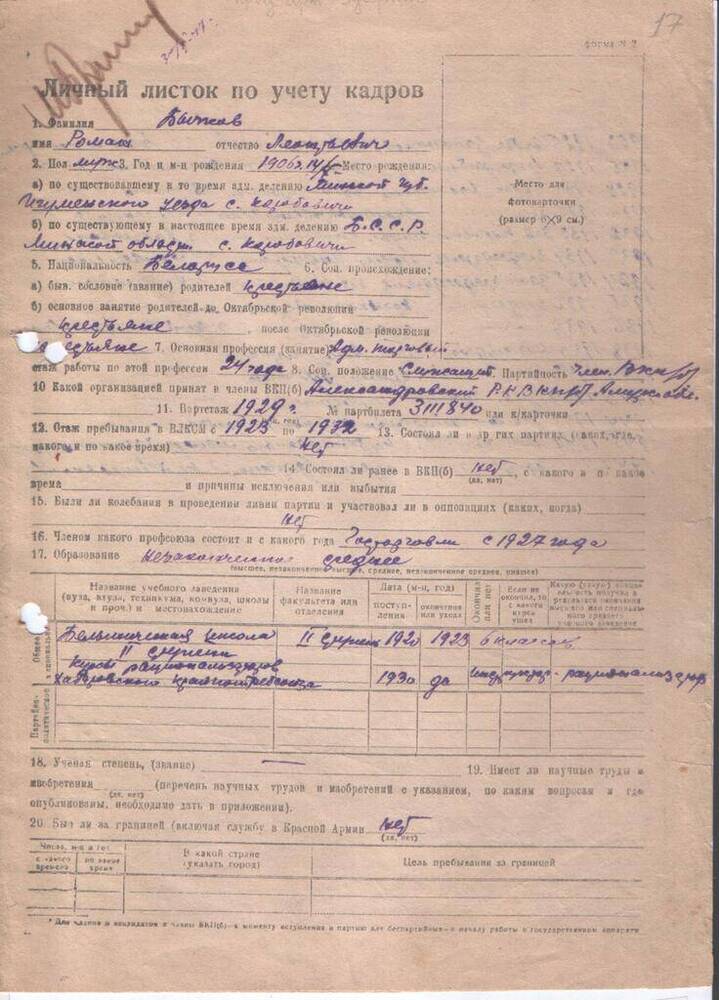 17
ФОРМА № 2
Личный листок по учету кадров
1. Фамилия Бычков
имя Роман отчество Леонтьевич
2. Пол муж 3. Год и м-ц рождения 1906 Место рождения:
а) по существовавшему в то время адм. делению Минской губ.
Игуменского уезда с. Каробовичи
б) по существующему в настоящее время адм. делению Б.С.С.Р.
Минской области с. Каробовичи
Место для
фотокарточки
(размер 6×9 см.)
5. Национальность Беларусс 6. Соц. происхождение:
а) быв. сословие (звание) родителей крестьяне
б) основное занятие родителей до Октябрьской революции
крестьяне, после Октябрьской революции
крестьяне 7. Основная профессия (занятие) Адм. торговый
стаж работы по этой профессии 24 года 8. Соц. положение служащий. Партийность член ВКП(б)
10 Какой организацией принят в члены ВКП(б) Александровский РК ВКП(б)
11. Партстаж 1929 г. № партбилета 3111840 или к/карточки
12. Стаж пребывания в ВЛКСМ с 1923 по 1932 13. Состоял ли в других партиях (каких, где,
какого и по какое время) Нет
14 Состоял ли ранее в ВКП(б) нет, с какого и по какое
(да, нет)
время и причины исключения или выбытия
15. Были ли колебания в проведении линии партии и участвовал ли в оппозициях (каких, когда)
Нет
16. Членом какого профсоюза состоит и с какого года Госторговли с 1927 года
17. Образование незаконченное среднее
(высшее, незаконченное высшее, среднее, незаконченное среднее, низшее)
Название учебного заведения (вуза, втуза, техникума, комвуза, школы и проч.) и местонахождение Название факультета или отделения Дата (м-ц, год) поступления окончания или ухода Окончил или нет Если не окончил, то с какого курса ушел Какую (узкую) специальность получил в результате окончания высшего или специального среднего учебного заведения
Общее и специальное
школа II ступень 1920 1923 6 классов
II ступени
Курсы рационализаторов
Хабаровского 1930 да рационализатор
Партийно-политическое
18. Ученая степень, (звание) — 19. Имеет ли научные труды и
изобретения (перечень научных трудов и изобретений с указанием, по каким вопросам и где
(да, нет)
опубликованы, необходимо дать в приложении).
20. Был ли за границей (включая службу в Красной Армии Нет
(да, нет)
Число, м-ц и год В какой стране Цель пребывания за границей
с какого времени по какое время (указать город)
* Для членов и кандидатов в члены ВКП(б)—к моменту вступления в партию для беспартийных—к началу работы в государственном аппарате